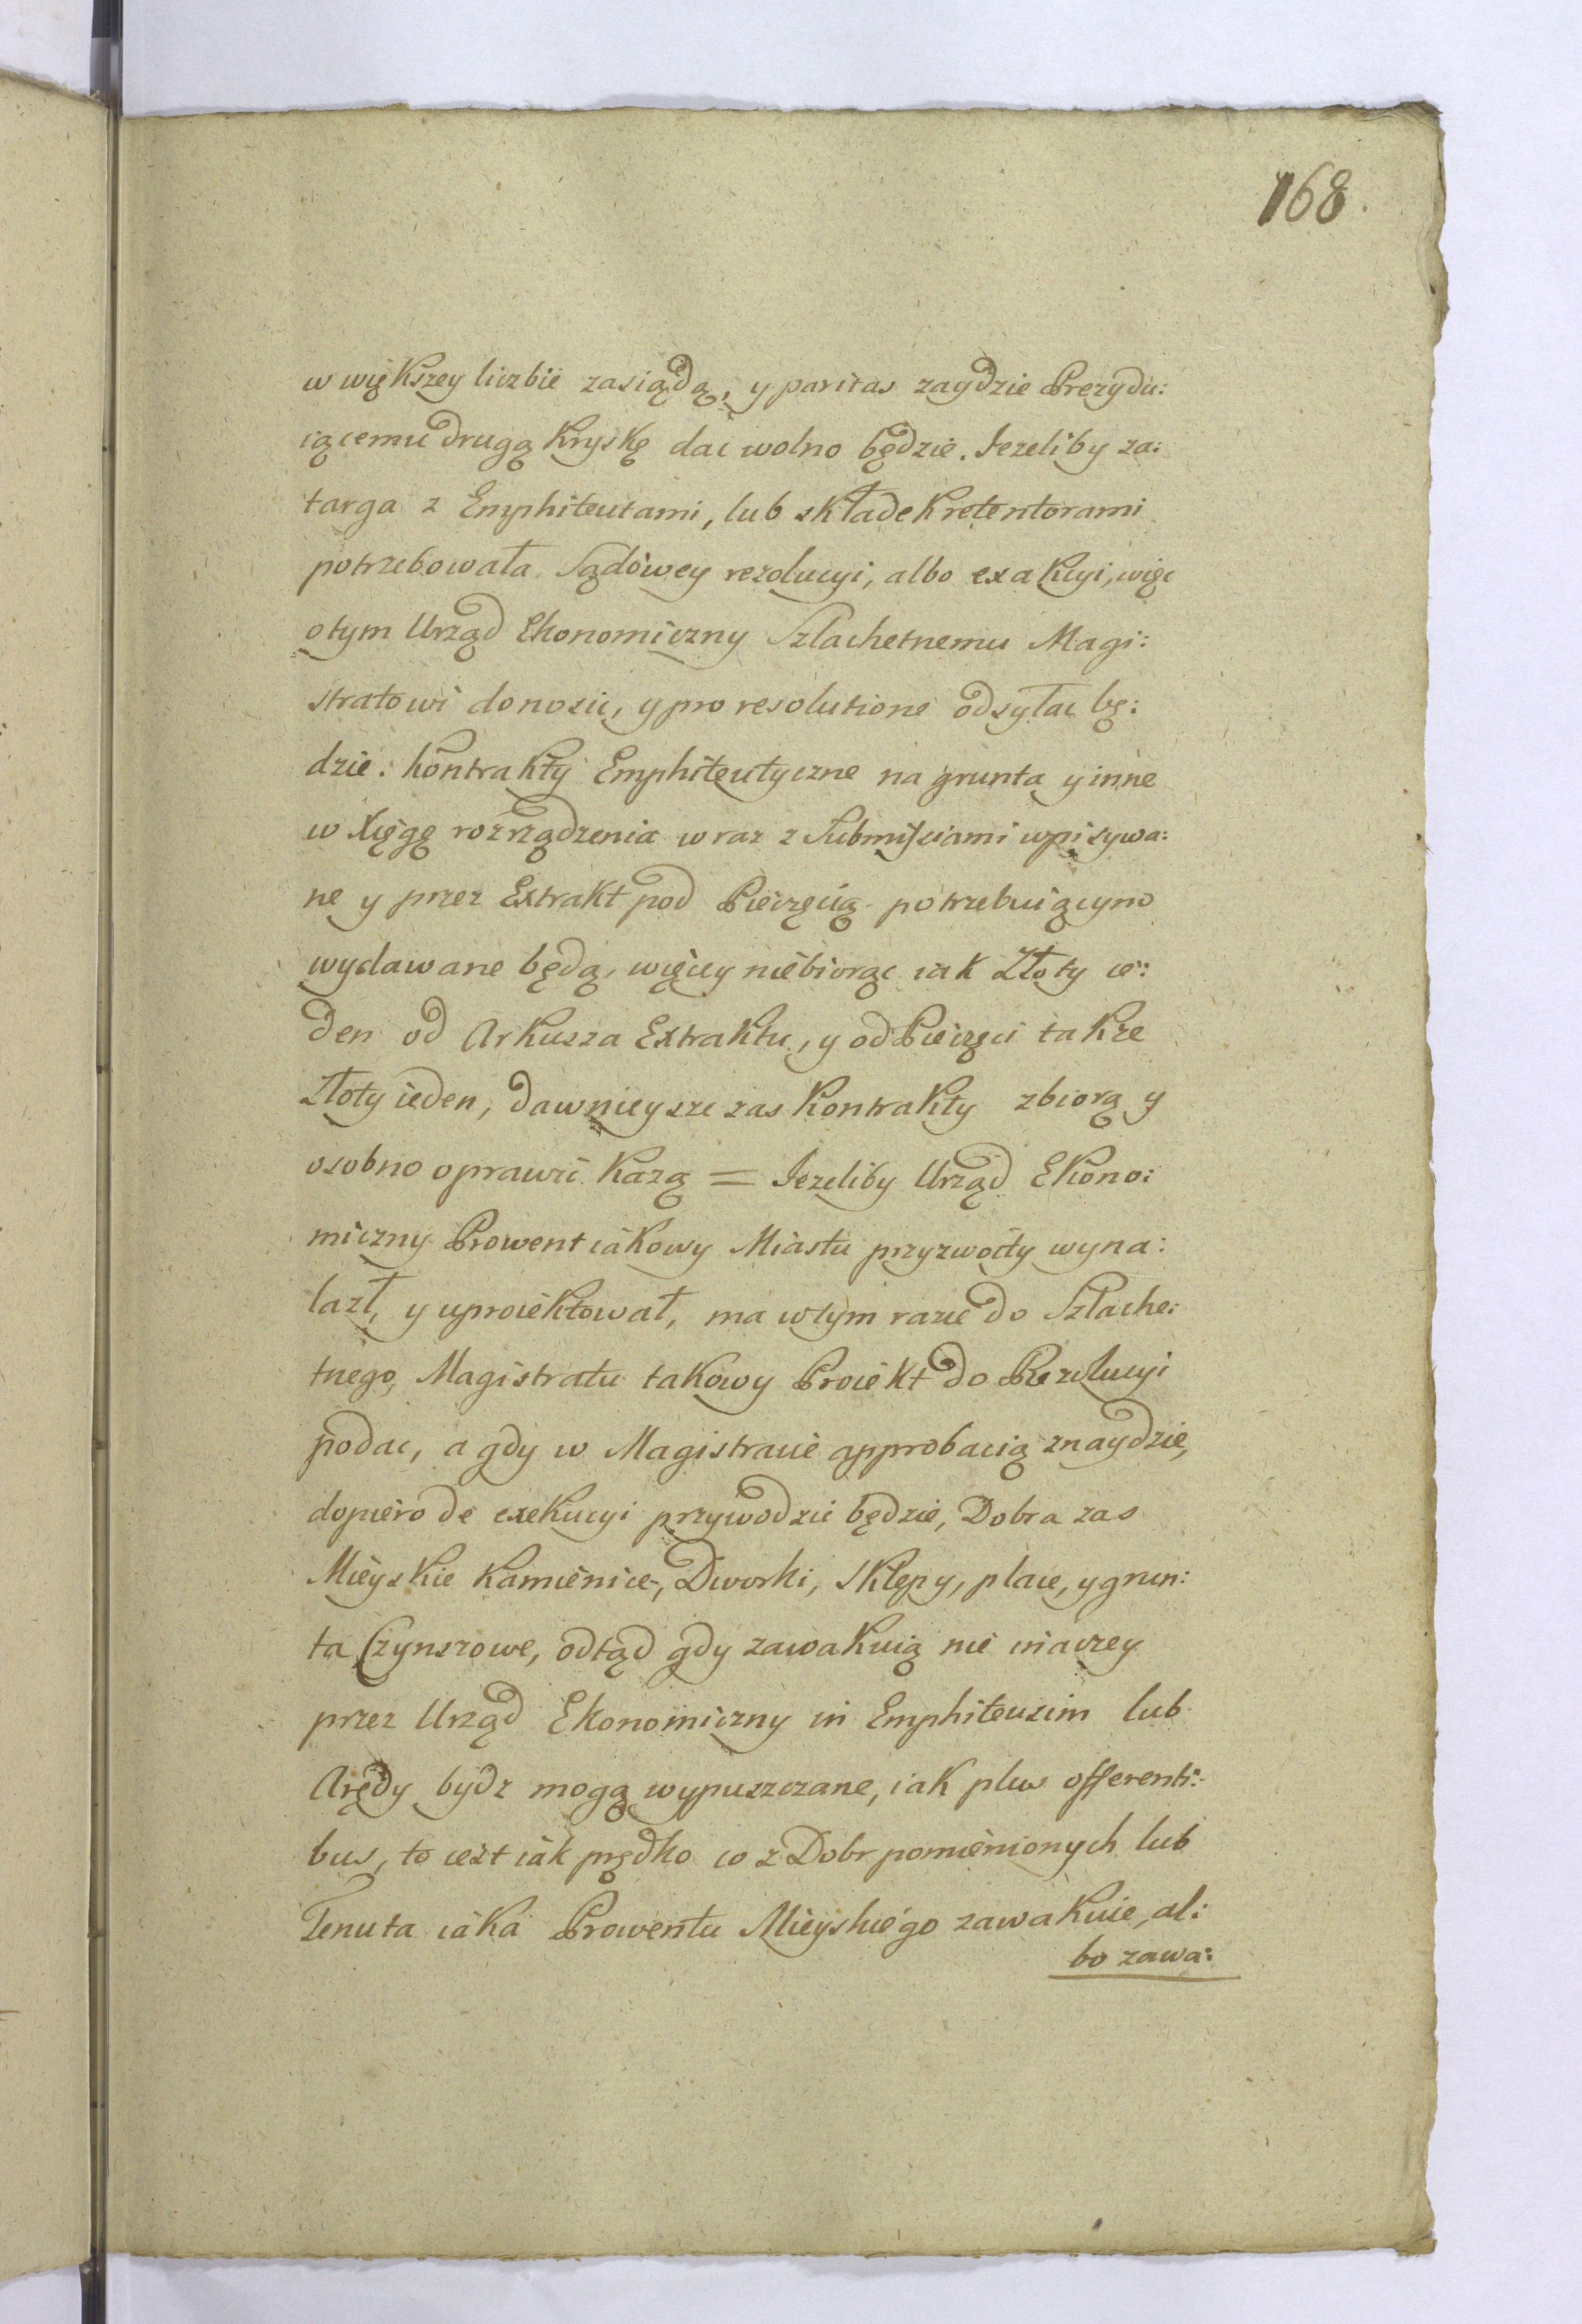 168.
w większey liczbie zasiądą, y paritas zaydzie Prezydu:
iącemu drugą Kryskę dac wolno będzie. Jezeliby za:
targa z Emphiteutami, lub składek retentorami
potrzebowała Sądowey rezolucyi, albo exakcyi, więc
o tym Urząd Ekonomiczny Szlachetnemu Magi:
stratowi donosic, y pro resolutione odsyłac bę:
dzie. Kontrakty Emphiteutyczne na grunta y inne
w Xięgę rozrządzenia wraz z Submissiami wpisywa:
ne y przez Extrakt pod Pieczęcią potrzebuiącym
wydawane będą, więcey niebiorąc iak Złoty ie:
den od Arkusza Extraktu, y od Pieczęci takze
Złoty ieden, dawnieysze zas Kontrakty zbiorą y
osobno oprawic Kazą = Jezeliby Urząd Ekono:
miczny Prowent iakowy Miastu przyzwoity wyna:
lazł, y uproiektował, ma w tym razie do Szlache:
tnego Magistratu takowy Proiekt do Rezolucyi
podac, a gdy w Magistracie approbacią znaydzie,
dopiero de exekucyi przywodzic będzie, Dobra zas
Mieyskie Kamienice, Dworki, Sklepy, place, y grun:
ta Czynszowe, odtąd gdy zawakuią nie inaczey
przez Urząd Ekonomiczny in Emphiteusim lub
Arędy bydz mogą wypuszczane, iak plus offerenti:
bus, to iest iak prędko co z Dobr pomienionych lub
Tenuta iaka Prowentu Mieyskiego zawakuie, al:
bo zawa: